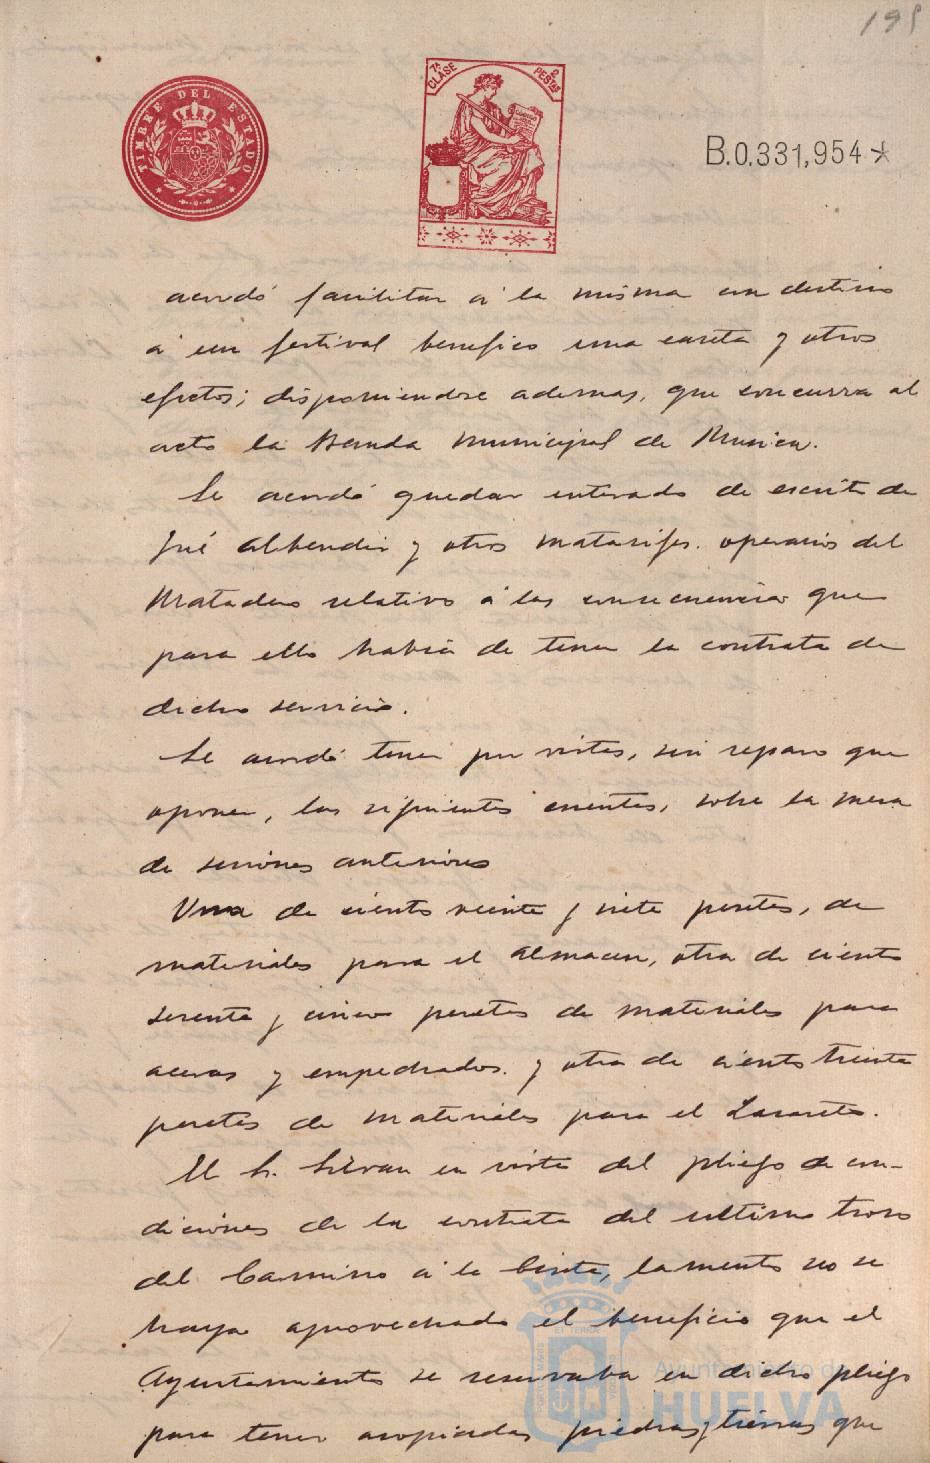 195
TIMBRE DEL ESTADO
7ª CLASE
2 PESETAS
B.0.331,954*
acordó facilitar á la misma con destino
á un festival benefico una caseta y otros
efectos; disponiendose ademas, que concurra al
acto la Banda Municipal de Musica.
Se acordó quedar enterado de escrito de
José Albendin y otros matarifes. operarios del
Matadero relativo á las consecuencias que
para ello habia de tener la contrata de
dicho servicio.
Se acordó tener por vistas, sin reparo que
oponer, las siguientes cuentas, sobre la mesa
de sesiones anteriores
Una de ciento veinte y siete pesetas, de
materiales para el almacen, otra de ciento
sesenta y cinco pesetas de materiales para
aceras y empedrados. y otra de ciento treinta
pesetas de materiales para el Lazareto.
El Sr. en vista del pliego de con-
diciones de la contrata del ultimo trozo
del Camino á la Cinta, lamento no se
haya aprovechado el beneficio que el
Ayuntamiento se reservaba en dicho pliego
para tener acopiadas piedras y tierras que
Ayuntamiento de
HUELVA